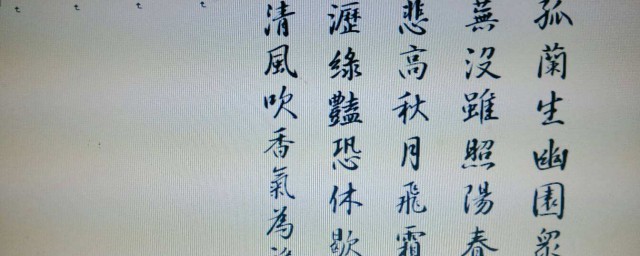 孤蘭生幽園眾
蕪沒雖照陽春
悲高秋月飛霜
瀝綠豔恐休歇
清風吹香氣為